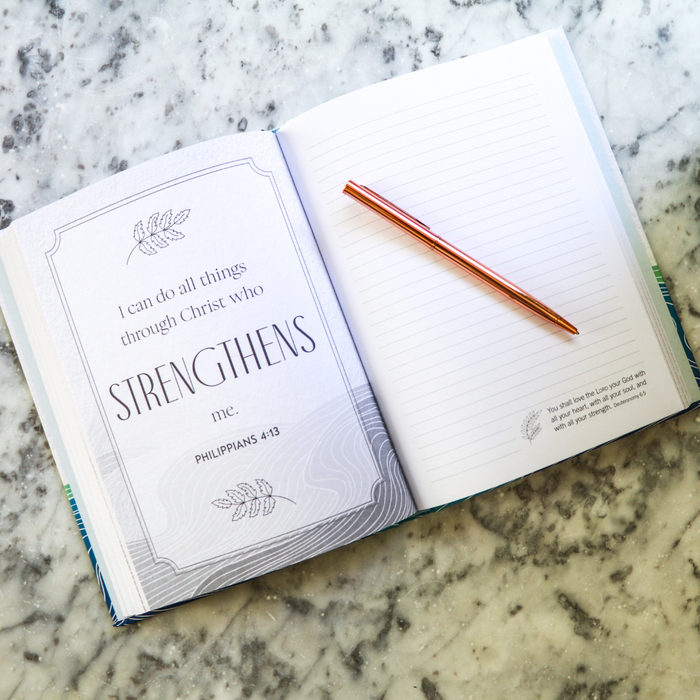 I can do all things
through Christ who
STRENGTHENS
me.
PHILIPPIANS 4:13
You shall love the LORD your God with
all your heart, with all your soul, and
with all your strength. Deuteronomy 6:5